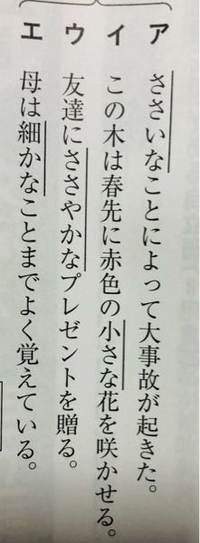 ア ささいなことによって大事故が起きた。
イ この木は春先に赤色の小さな花を咲かせる。
ウ 友達にささやかなプレゼントを贈る。
エ 母は細かなことまでよく覚えている。